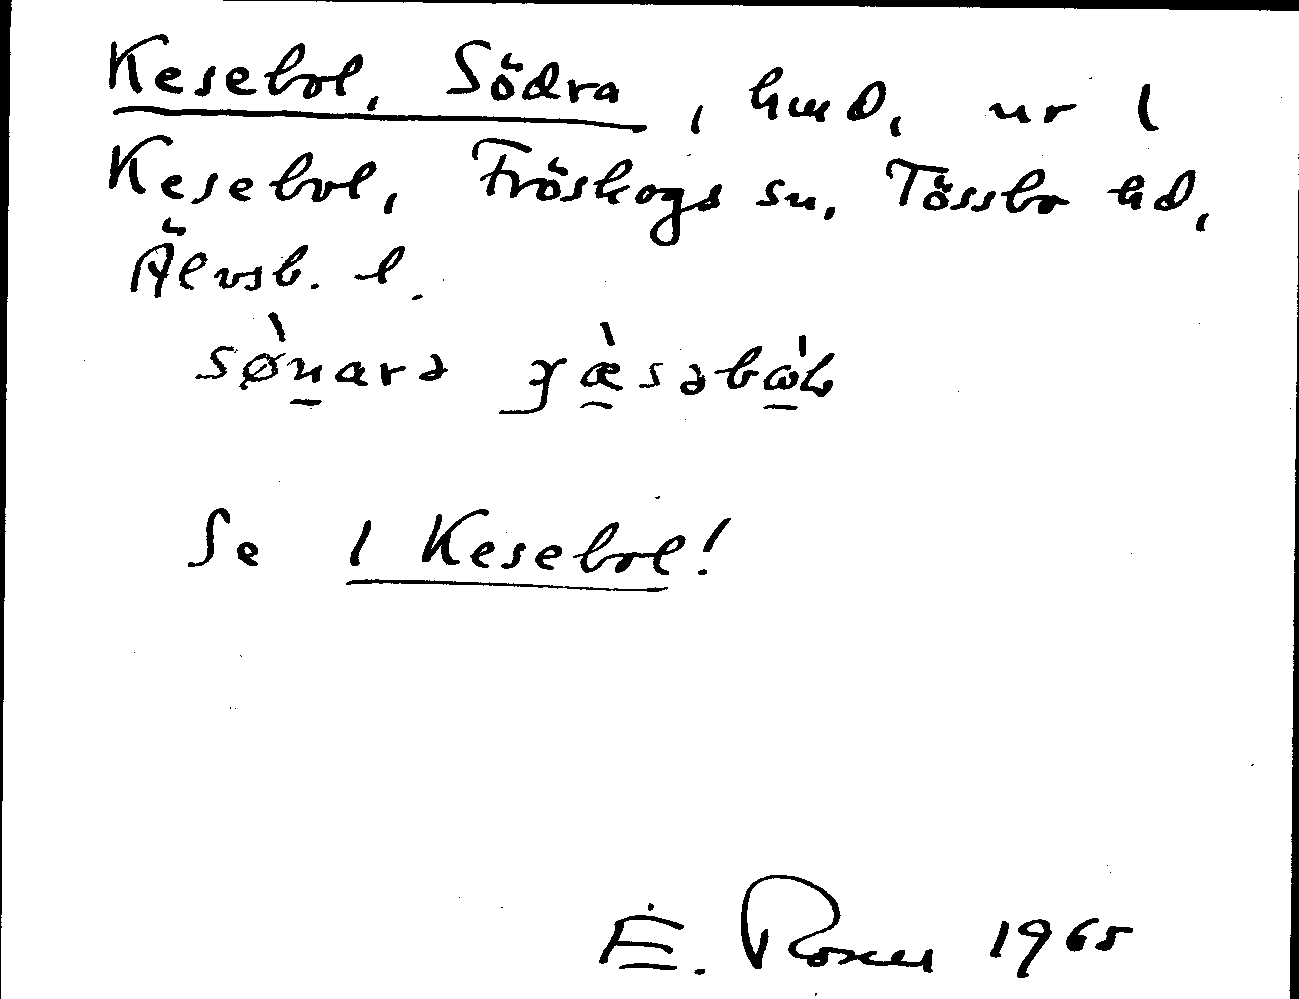 Kesebol, Södra, hmd, nr 1
Kesebol, Fröskogs sn, Tössbo hd,
Älvsb. l.
sø̀narə jæ̀səbὼl
Se 1 Kesebol!
E. Roxer 1965